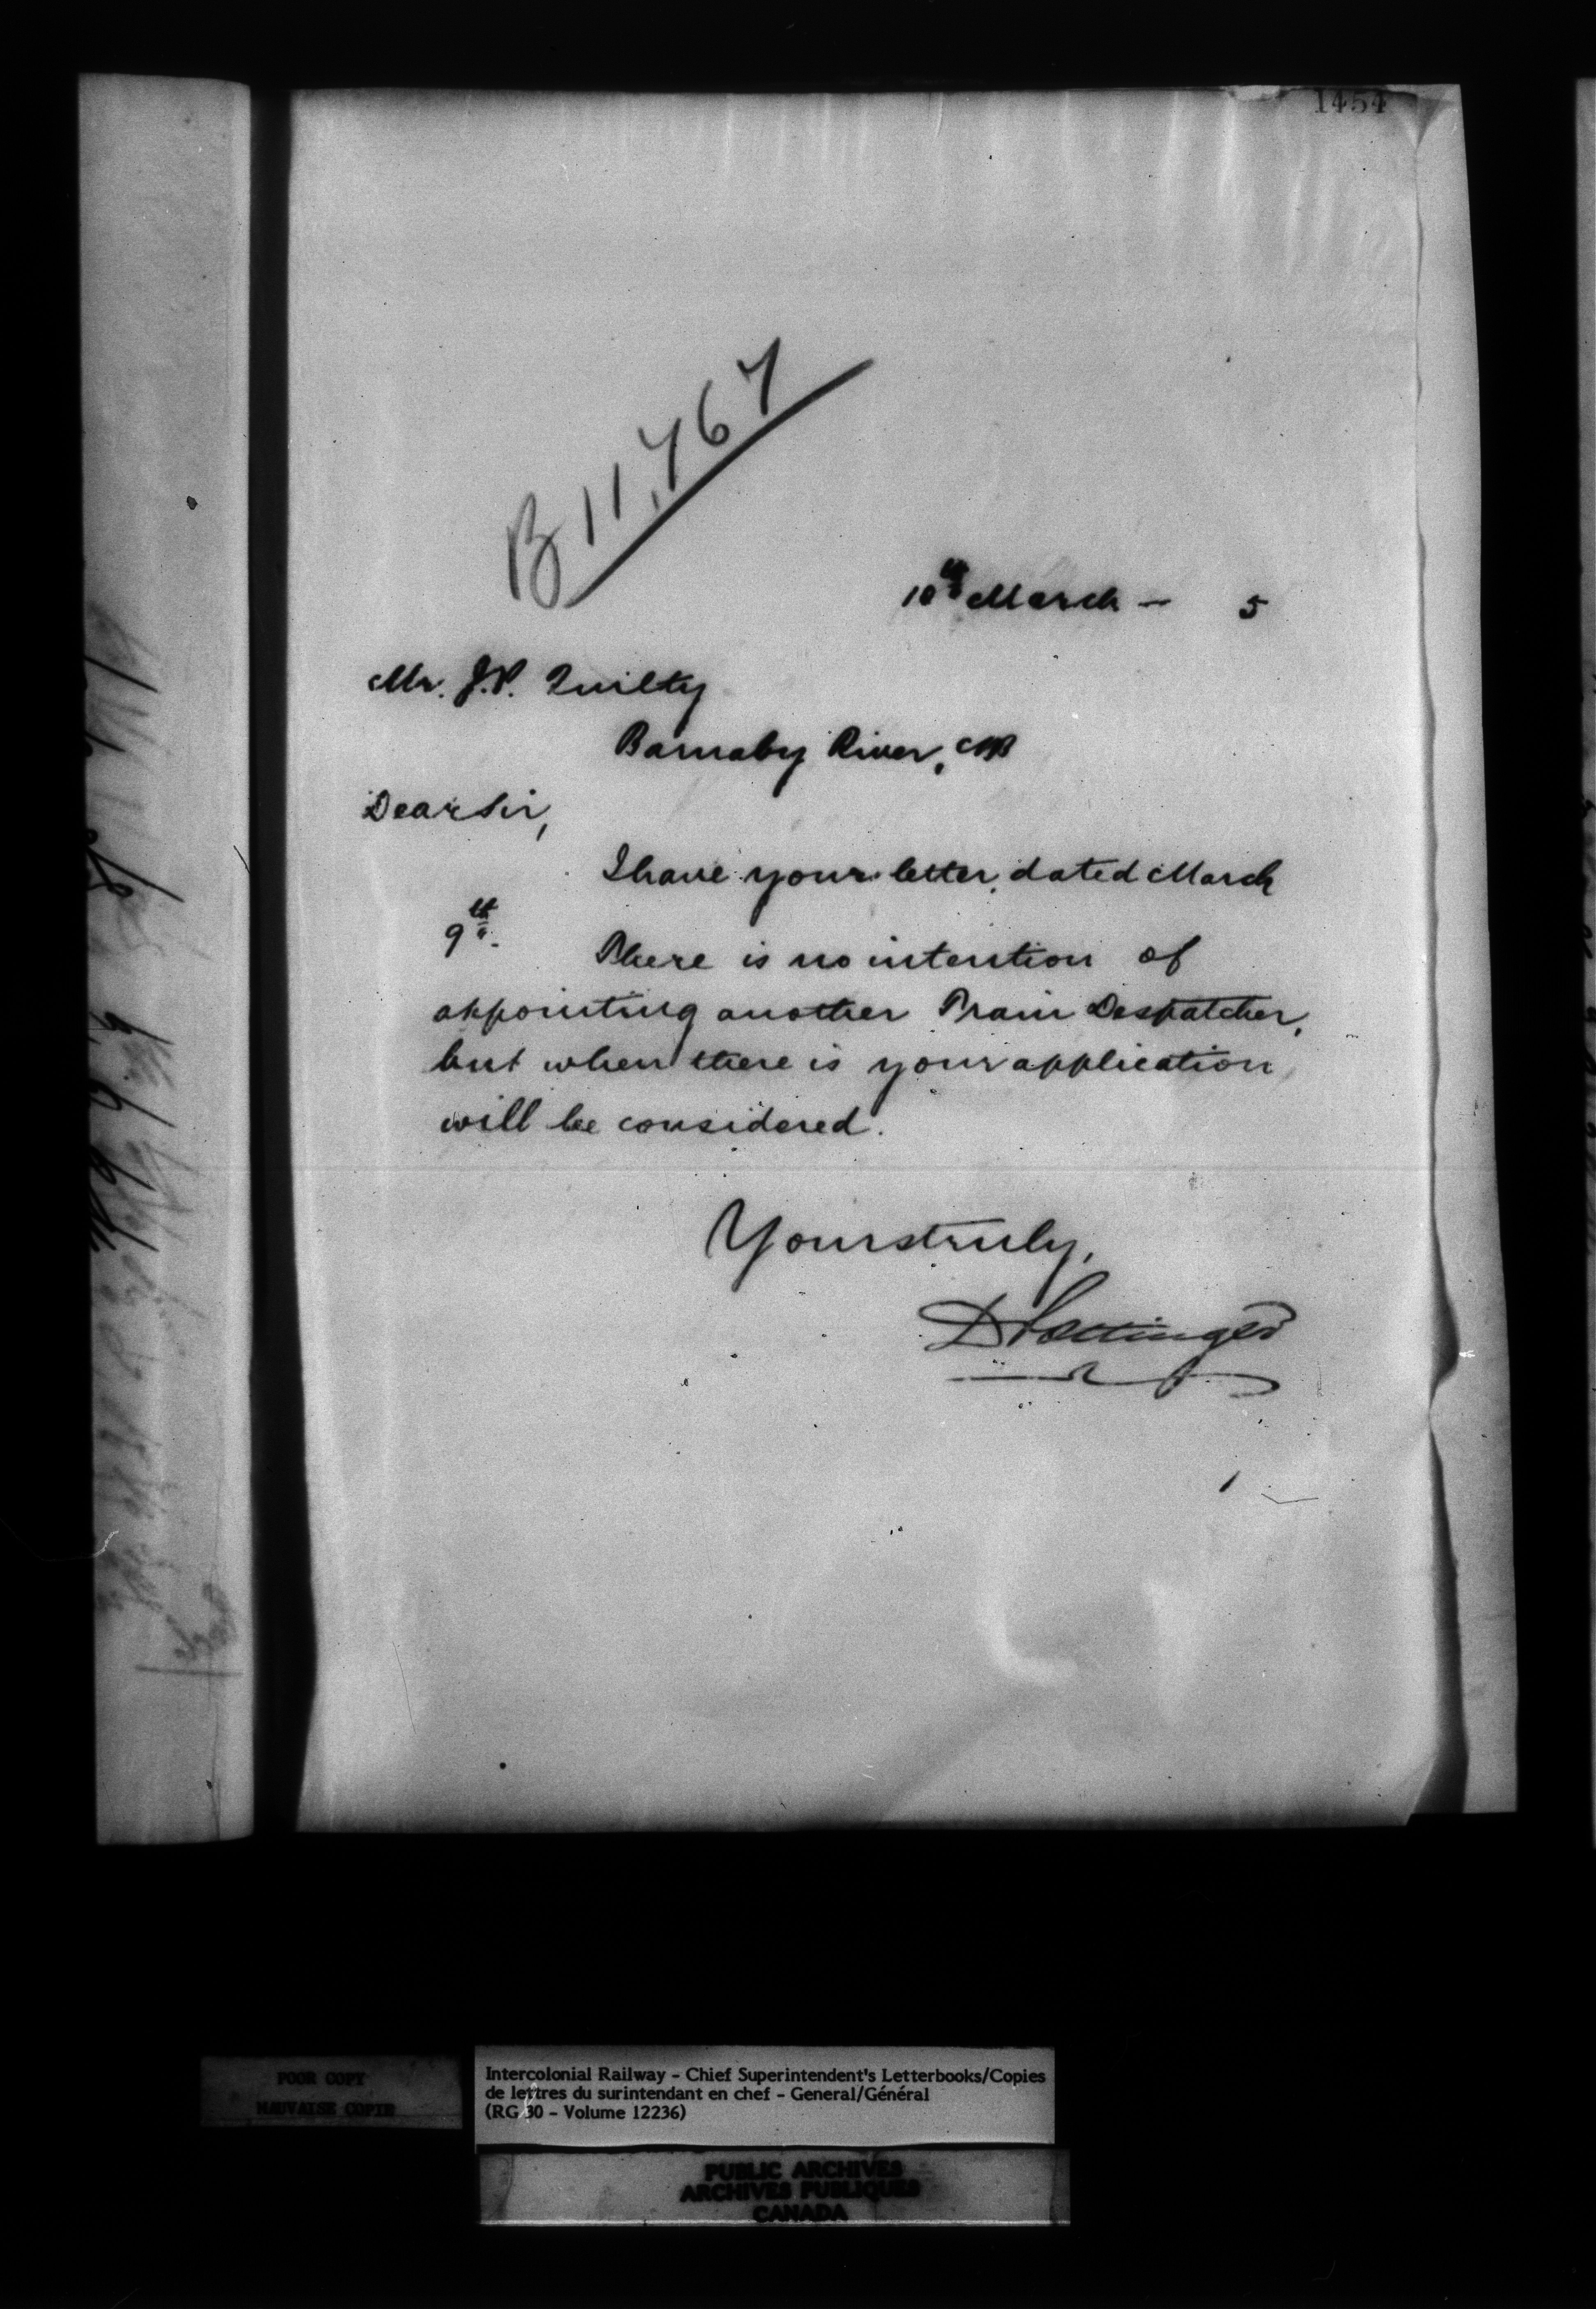 1454
B 11,767
10th March - 5
Mr. J.P. Quilty
Barnaby River, NB
Dear Sir,
I have your letter dated March
9th.
There is no intention of
appointing another Train Despatcher,
but when there is your application
will be considered.
Yours truly,
D Pottinger
POOR COPY
MAUVAISE COPIE
Intercolonial Railway - Chief Superintendent's Letterbooks/Copies
de lettres du surintendant en chef - General/Général
(RG 30 - Volume 12236)
PUBLIC ARCHIVES
ARCHIVES PUBLIQUES
CANADA